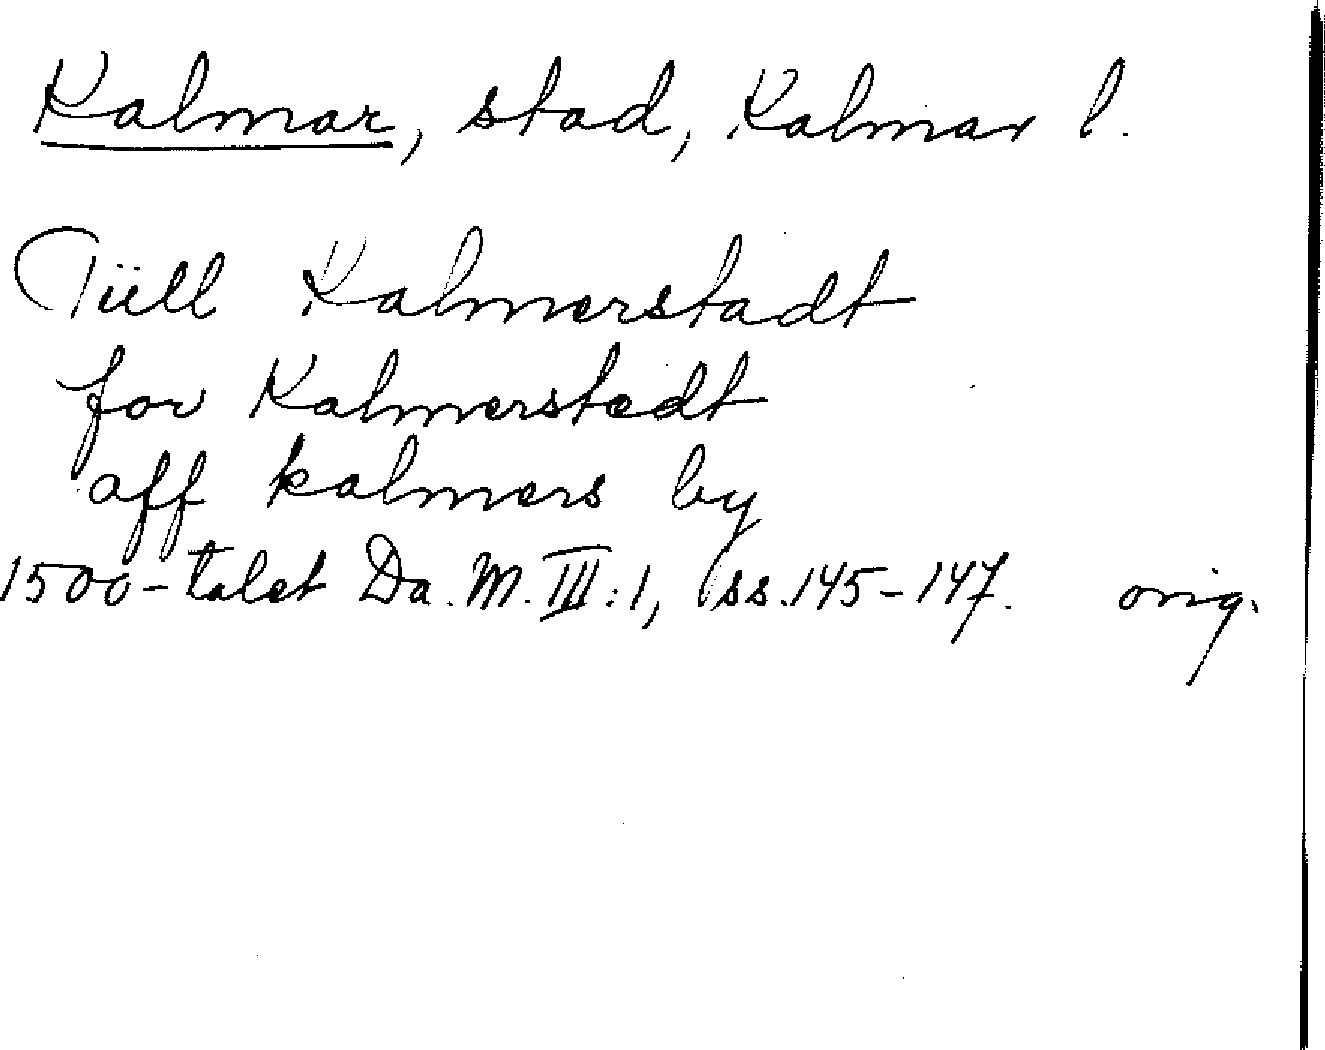 Kalmar, stad, Kalmar l.
Tiell Kalmerstadt
for Kalmerstedt
aff kalmers by
1500-talet Da. M. III:1, ss. 145-147. orig.